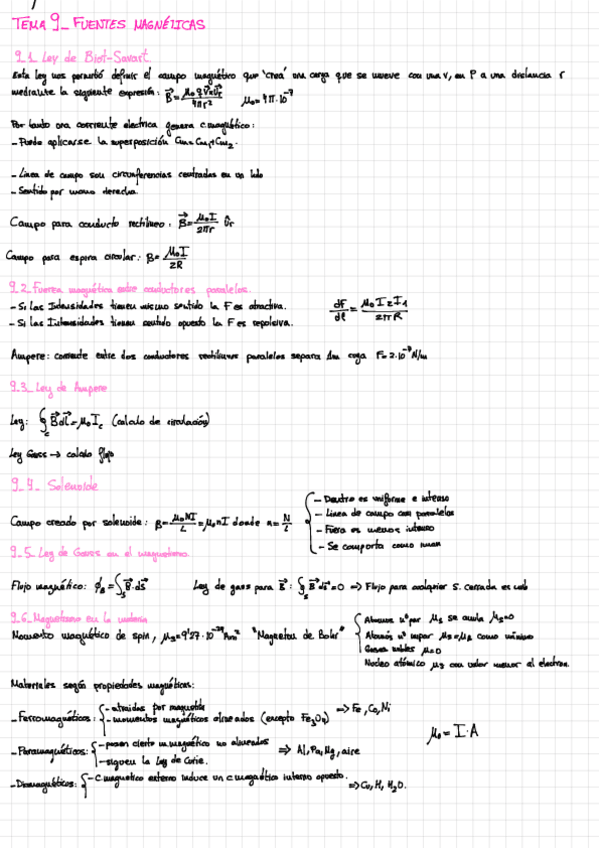 TEMA 9_ FUENTES MAGNÉTICAS
9.1_ Ley de Biot-Savart.
Esta ley nos permitió definir el campo magnético que 'crea' una carga que se mueve con una v, en P a una distancia r
mediante la siguiente expresión: B⃗ = μ₀ q v⃗ × û_r / 4πr²   μ₀ = 4π·10⁻⁷
Por tanto una corriente electrica genera c.magnético:
- Puede aplicarse la superposición Cm=Cm₁+Cm₂.
- Linea de campo son circunferencias centradas en un
- Sentido por mano derecha.
Campo para conducto rectilineo: B⃗ = μ₀I / 2πr û_r
Campo para espira circular: B = μ₀I / 2R
9.2_ Fuerza magnética sobre conductores paralelos.
- Si las Intensidades tienen mismo sentido la F es atractiva.   dF/dl = μ₀ I₂ I₁ / 2πR
- Si las Intensidades tienen sentido opuesto la F es repulsiva.
Ampere: corriente entre dos conductores rectilineos paralelos separa 1m cuya F=2·10⁻⁷ N/m
9.3_ Ley de Ampere
Ley: ∮_c B⃗ dl⃗ = μ₀ I_c (calculo de circulación)
Ley Gauss → calculo flujo
9.4_ Solenoide
Campo creado por solenoide: B = μ₀NI / L = μ₀nI donde n = N/L
- Dentro es uniforme e intenso
- Linea de campo son paralelas
- Fuera es menos intenso
- Se comporta como iman
9.5_ Ley de Gauss en el magnetismo.
Flujo magnético: φ_B = ∫_S B⃗·ds⃗   Ley de gass para B⃗: ∮_S B⃗ ds⃗ = 0 => Flujo para cualquier S. cerrada es
9.6_ Magnetismo en la materia
Momento magnético de spin, μ_B = 9'27·10⁻²⁴ Am² "Magneton de Bohr"
Atomos nº par μ_s se anula μ_s=0
Atomos nº impar μ_s=μ_B como mínimo
Gases nobles μ=0
Nucleo atómico μ_s con valor menor al electron.
Materiales según propiedades magnéticas:
- Ferromagnéticos: - atraidos por magnetita => Fe, Co, Ni
- momentos magnéticos alineados (excepto Fe₃O₄)
- Paramagnéticos: - poseen cierto m.magnético no alineados => Al, Pa, Mg, aire
- siguen la Ley de Curie.
μ₀ = I·A
- Diamagnéticos: - C magnetico externo induce un c magnético interno opuesto. => Cu, H, H₂O.